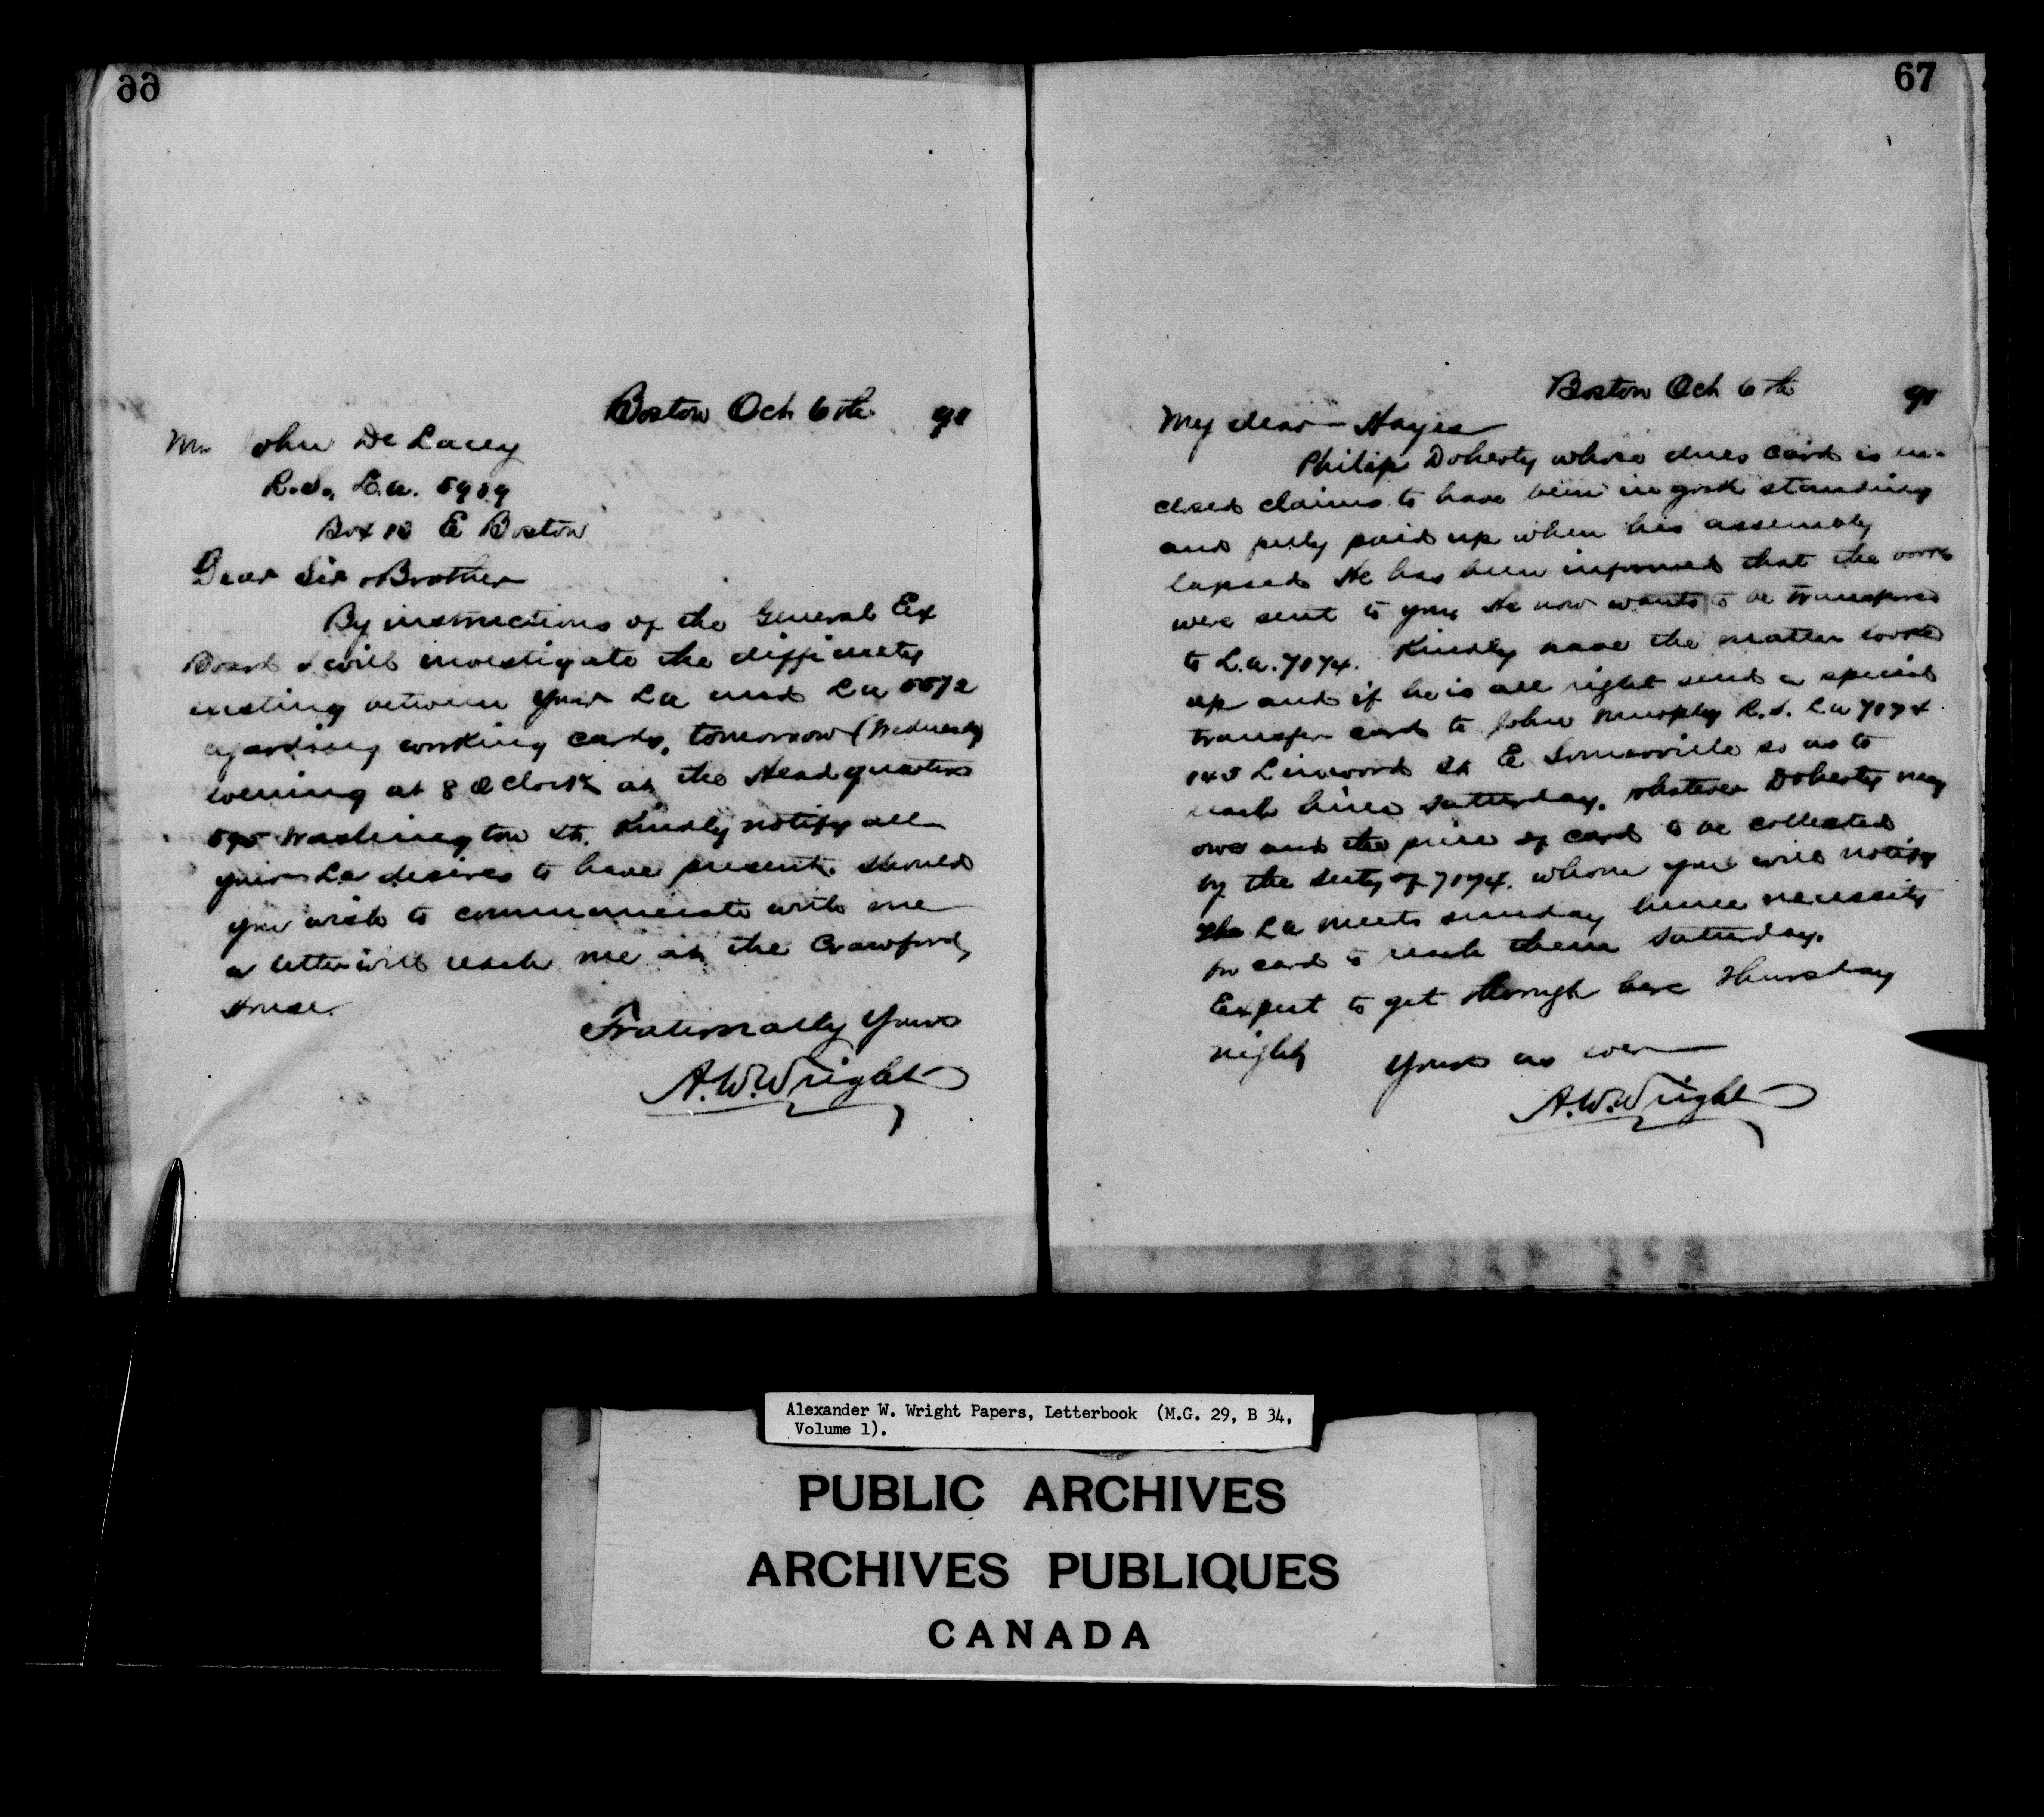 66
Boston Oct 6th 91
Mr John De Lacey
R.S. L.A. 5959
Box 18 E Boston
Dear Sir & Brother
By instructions of the General Ex
Board I will investigate the difficulty
existing between your LA and LA 5572
regarding working cards, tomorrow (Wednesday)
evening at 8 O Clock at the Headquarters
Washington St. Kindly notify all
your La desires to have present. Should
you wish to communicate with me
a letter will reach me at the Crawford
House.
Fraternally Yours
A.W.Wright
67
Boston Oct 6th 91
My dear Hayes
Philip Doherty whose dues card is en-
closed claims to have been in good standing
and fully paid up when his assembly
lapsed He has been informed that the books
were sent to you, He now wants to be transferred
to L.A. 7174. Kindly have the matter looked
up and if he is all right send a special
transfer card to John Murphy R.S. LA 7174
143 Linwood St E Somerville so as to
reach him Saturday. Whatever Doherty may
owe and the price of card to be collected
by the Secty of 7174. whom you will notify
The LA meets Sunday hence necessity
for card to reach them Saturday.
Expect to get through here Thursday
night Yours as ever
A.W.Wright
Alexander W. Wright Papers, Letterbook (M.G. 29, B 34,
Volume 1).
PUBLIC ARCHIVES
ARCHIVES PUBLIQUES
CANADA